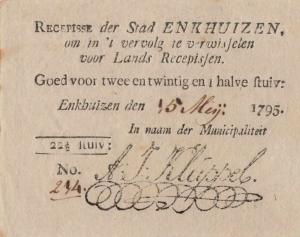 RECEPISSE der Stad ENKHUIZEN,
om in 't vervolg te verwisselen
voor Lands Recepissen.
Goed voor twee en twintig en 1 halve stuiv:
Enkhuizen den 15 Meij 1795.
In naam der Municipaliteit
22½ stuiv:
No. A. J. Kluppel.
234.